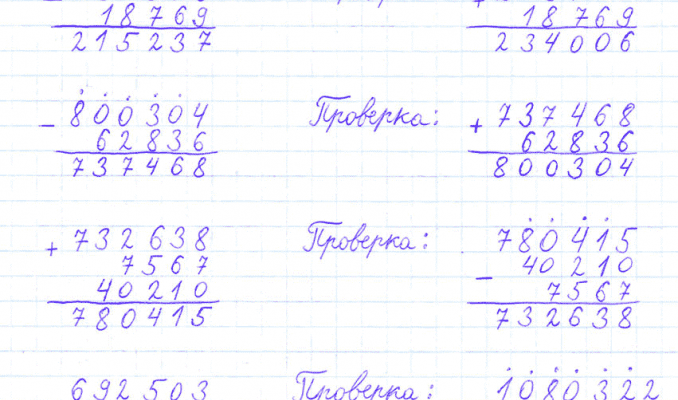 - 18769 + 18769
215237 234006
- 800304 Проверка: + 737468
62836 62836
737468 800304
+ 732638 Проверка: 780415
7567 - 40210
40210 7567
780415 732638
692503 Проверка: 1080322